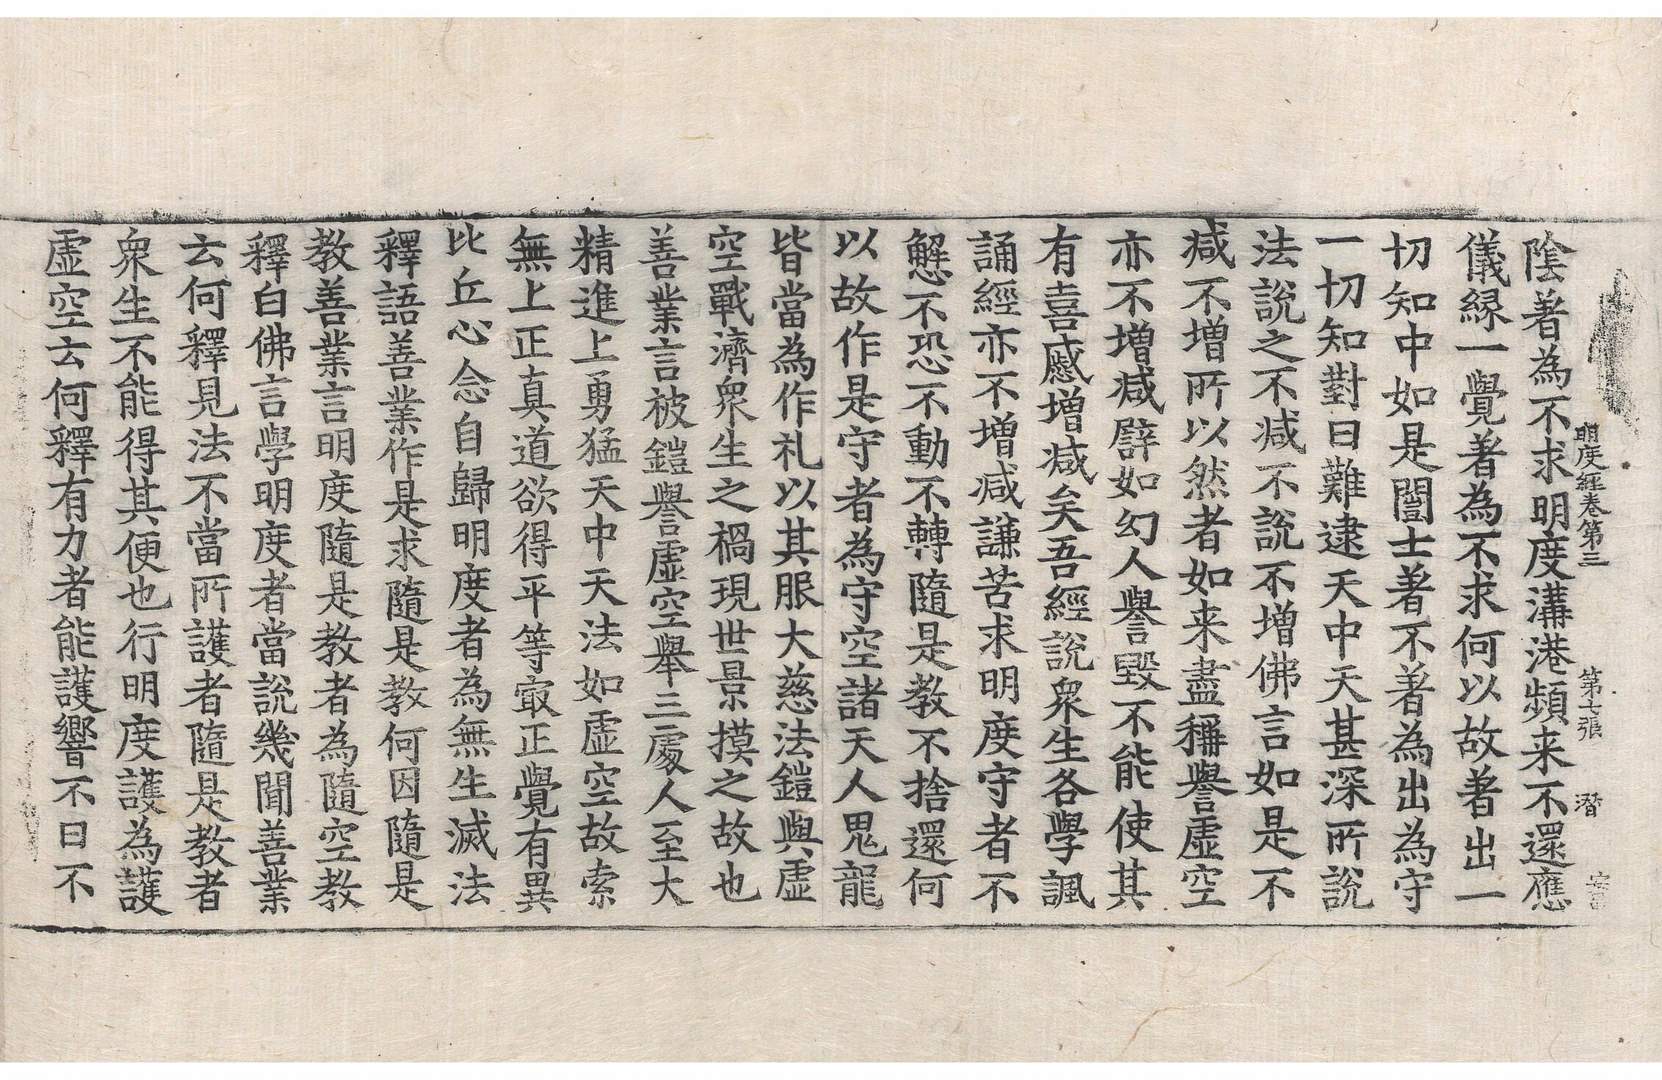 明度經卷第三　第七張　潛
陰著為不求明度溝港頻来不還應
儀緣一覺著為不求何以故著出一
切知中如是闓士著不著為出為守
一切知對曰難逮天中天甚深所說
法說之不減不說不增佛言如是不
減不增所以然者如来盡稱譽虛空
亦不增減譬如幻人譽毀不能使其
有喜慼增減矣吾經說衆生各學諷
誦經亦不增減謙苦求明度守者不
懈不恐不動不轉隨是教不捨還何
以故作是守者為守空諸天人鬼龍
皆當為作礼以其服大慈法鎧與虛
空戰濟衆生之禍現世景摸之故也
善業言被鎧譽虛空舉三處人至大
精進上勇猛天中天法如虛空故索
無上正真道欲得平等㝡正覺有異
比丘心念自歸明度者為無生滅法
釋語善業作是求隨是教何因隨是
教善業言明度隨是教者為隨空教
釋白佛言學明度者當說幾聞善業
云何釋見法不當所護者隨是教者
衆生不能得其便也行明度護為護
虛空云何釋有力者能護響不曰不